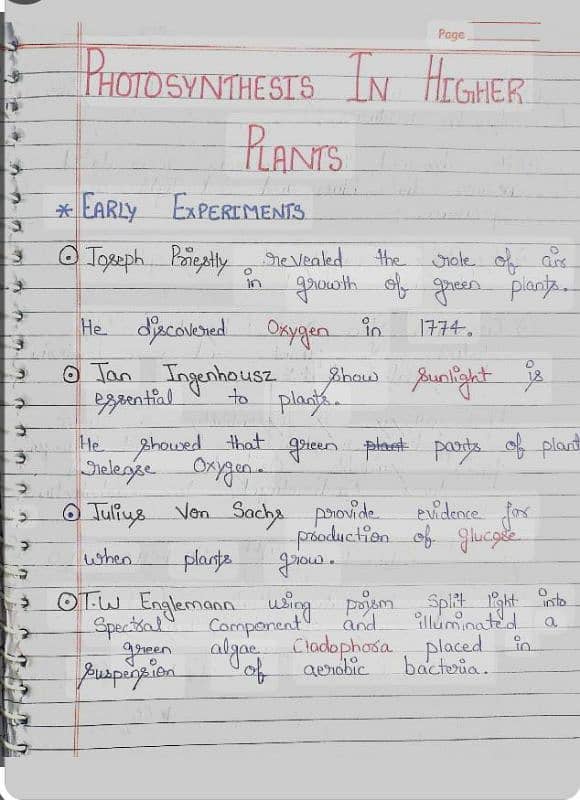 Page
PHOTOSYNTHESIS IN HIGHER
PLANTS
* EARLY EXPERIMENTS
⊙ Joseph Priestly revealed the role of air
in growth of green plants.
He discovered Oxygen in 1774.
⊙ Jan Ingenhousz show sunlight is
essential to plants.
He showed that green plant parts of plant
release Oxygen.
⊙ Julius Von Sachs provide evidence for
production of glucose
when plants grow.
⊙ T.W Englemann using prism split light into
Spectral Component and illuminated a
green algae Cladophora placed in
suspension of aerobic bacteria.